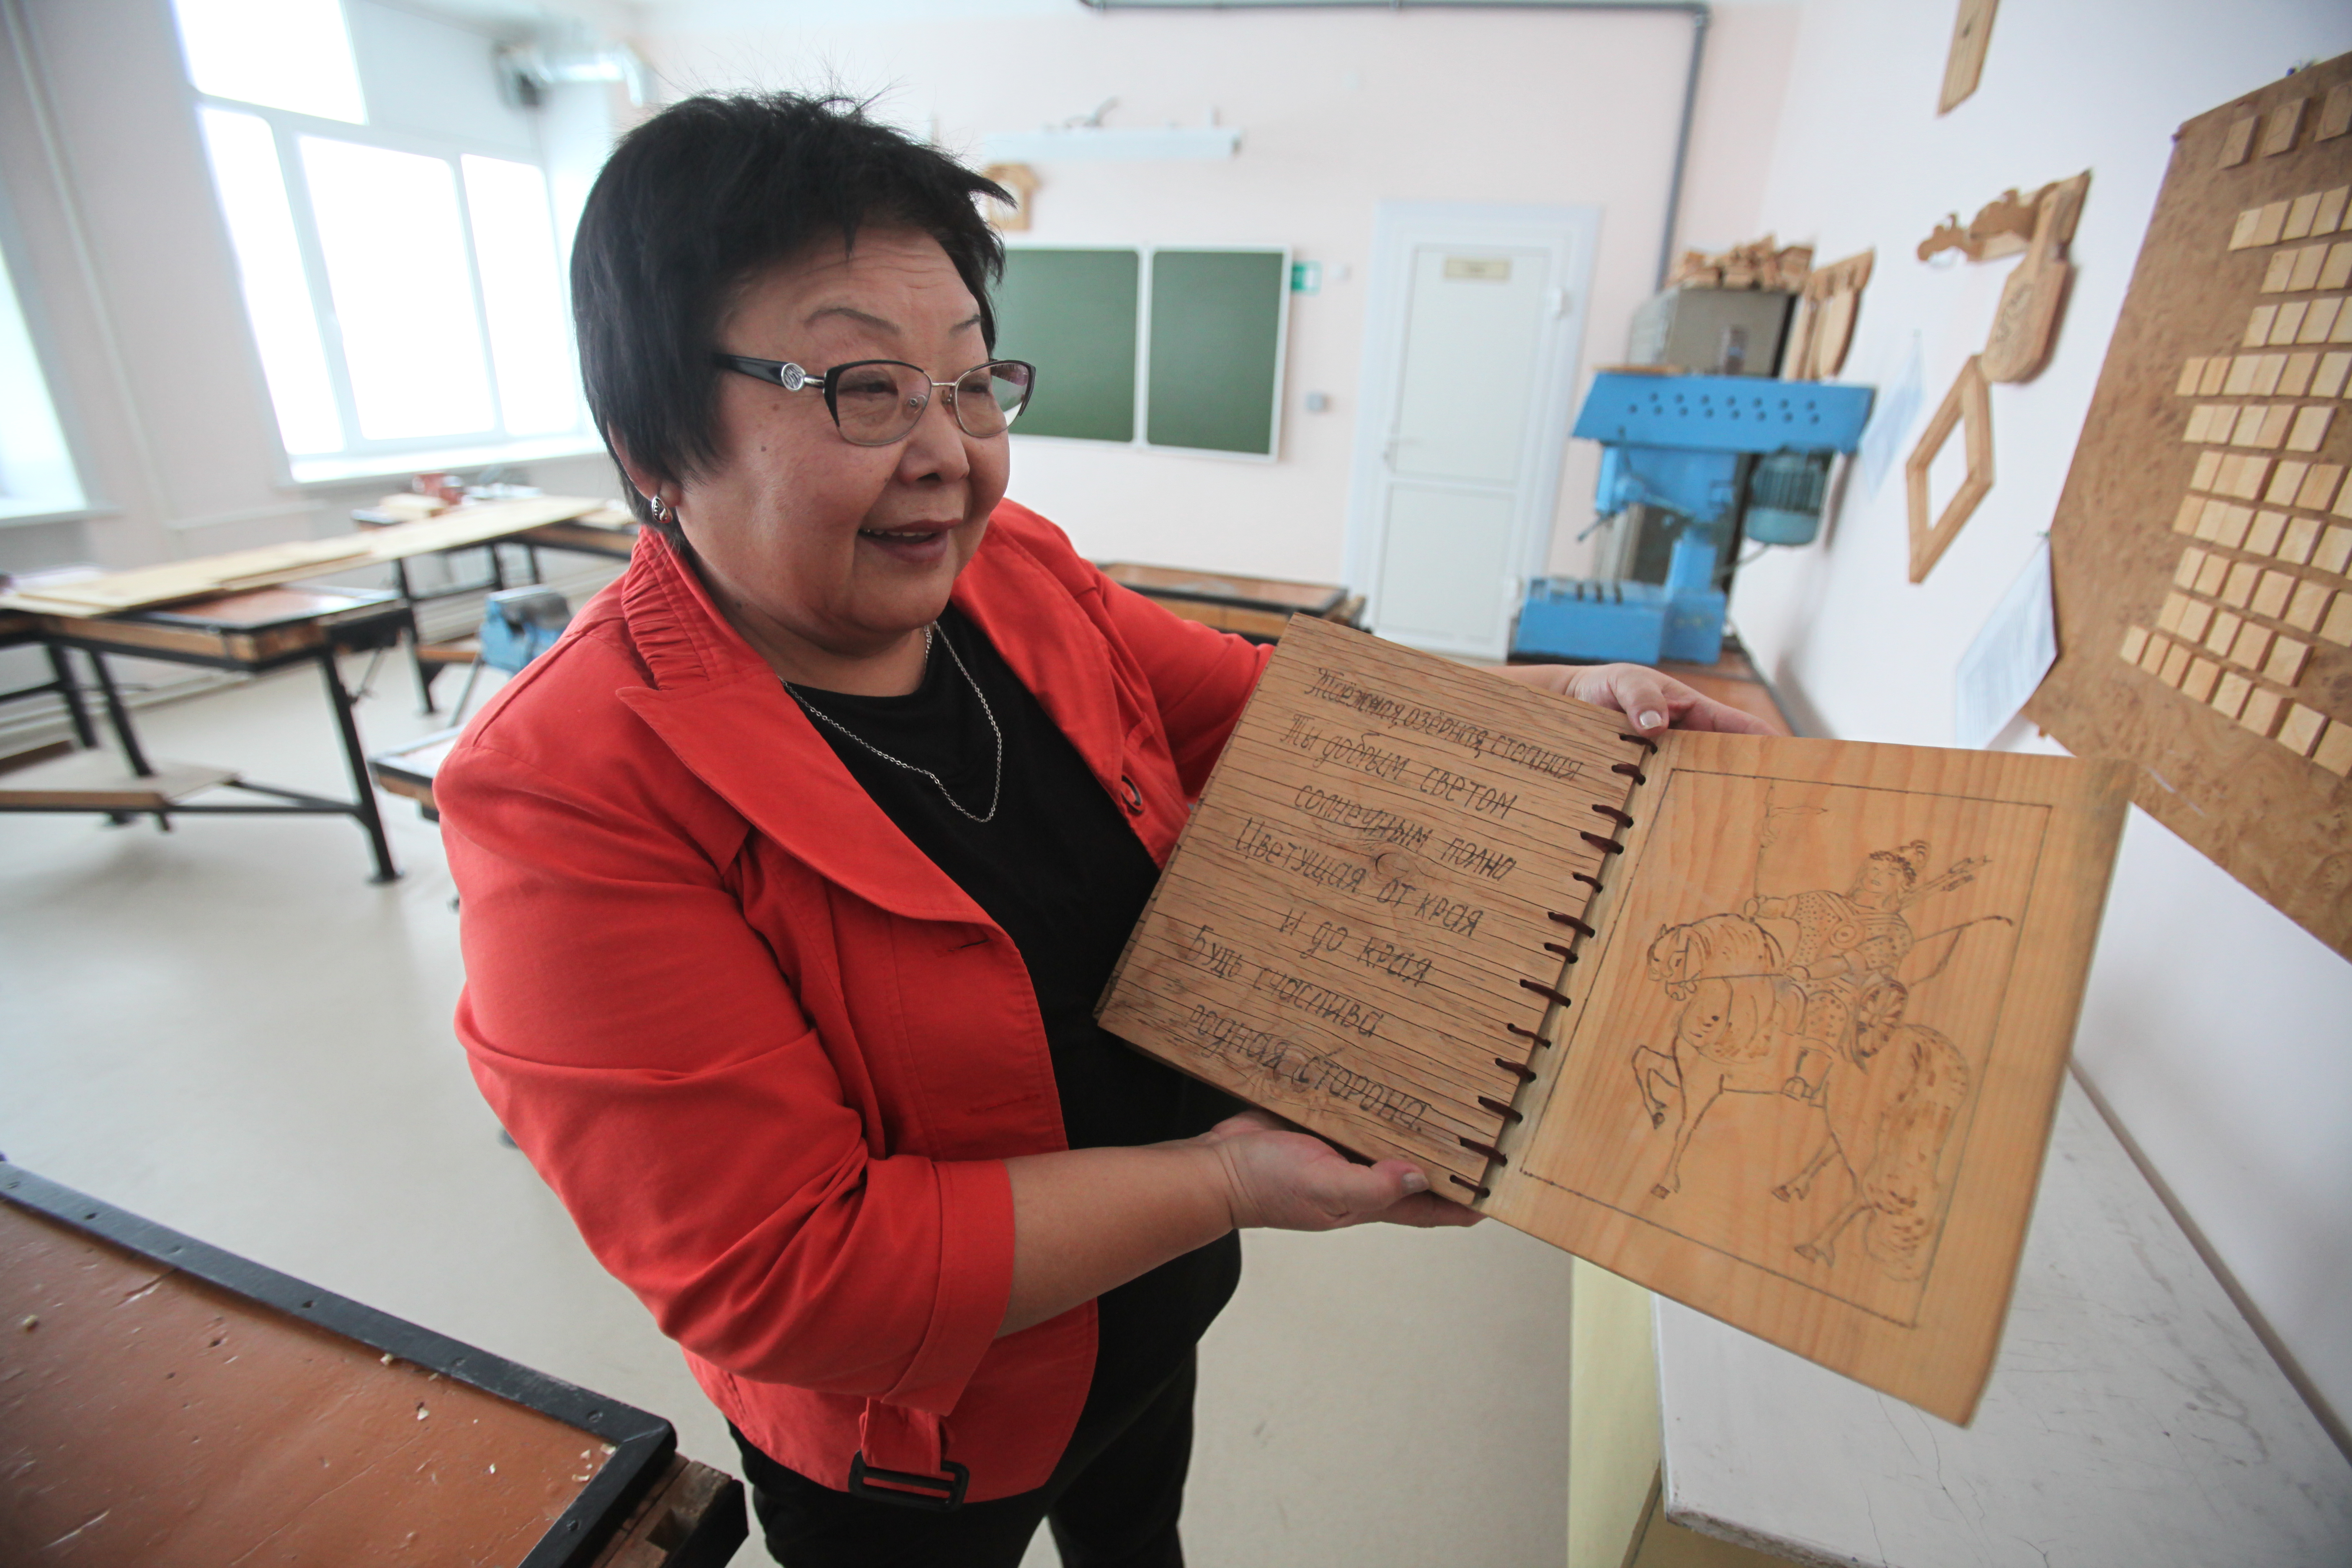 Таежная, озёрная, степная
Ты добрым светом
солнечным полна
Цветущая от края
и до края
Будь счастлива
родная сторона.